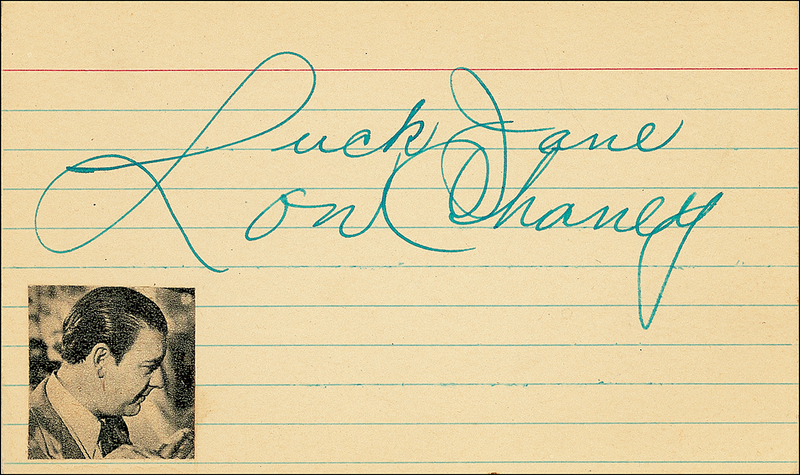 Luck Jane
Lon Chaney